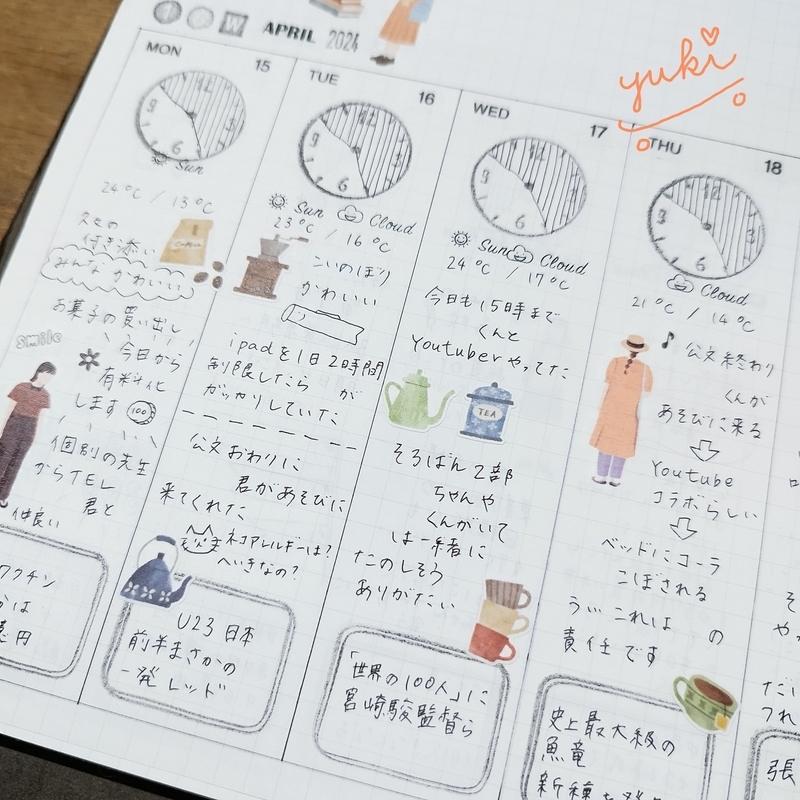 T
W
APRIL 2024
yuki
MON 15
Sun
24°C / 13°C
付き添い
Coffee
みんなかわいい
お菓子の買い出し
smile
今日から
有料化
します 100
個別の先生
からTEL
君と
仲良い
ワクチン
は
円
TUE 16
Sun Cloud
23°C / 16°C
こいのぼり
かわいい
ipadを1日2時間
制限したら が
ガッカリしていた
公文おわりに
君があそびに
来てくれた
ネコアレルギーは?
へいきなの?
U23 日本
前半まさかの
一発レッド
WED 17
Sun Cloud
24°C / 17°C
今日も15時まで
くんと
Youtuberやってた
TEA
そろばん2部
ちゃんや
くんがいて
は一緒に
たのしそう
ありがたい
「世界の100人」に
宮崎駿監督ら
THU 18
Cloud
21°C / 14°C
♪ 公文終わり
くんが
あそびに来る
Youtube
コラボらしい
ベッドにコーラ
こぼされる
うぃ これは の
責任です
史上最大級の
魚竜
新種
張